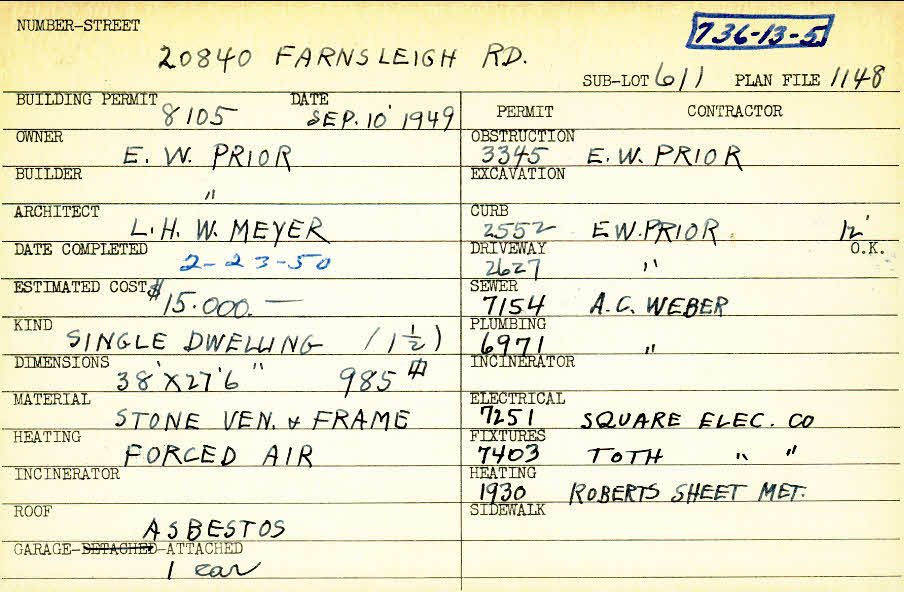 NUMBER-STREET
736-13-5
20840 FARNSLEIGH RD.
SUB-LOT 611 PLAN FILE 1148
BUILDING PERMIT DATE
8105 SEP. 10' 1949
OWNER
E. W. PRIOR
BUILDER
"
ARCHITECT
L. H. W. MEYER
DATE COMPLETED
2-23-50
ESTIMATED COST $
15.000. —
KIND
SINGLE DWELLING (1 1/2)
DIMENSIONS
38' X 27' 6" 985 #
MATERIAL
STONE VEN. & FRAME
HEATING
FORCED AIR
INCINERATOR
ROOF
ASBESTOS
GARAGE-DETACHED-ATTACHED
1 car
PERMIT CONTRACTOR
OBSTRUCTION
3345 E. W. PRIOR
EXCAVATION
CURB
2552 E W. PRIOR. 12'
DRIVEWAY O.K.
2627 "
SEWER
7154 A. C. WEBER
PLUMBING
6971 "
INCINERATOR
ELECTRICAL
7251 SQUARE ELEC. CO
FIXTURES
7403 TOTH " "
HEATING
1930 ROBERTS SHEET MET.
SIDEWALK